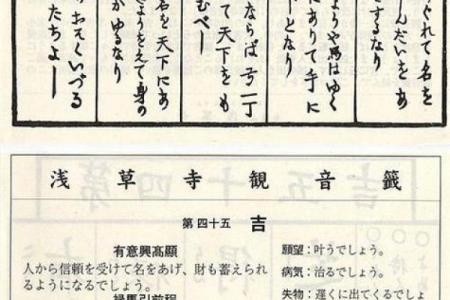 ぐれて名を
んだいをあ
するなり
ようや馬はゆく
にありて手に
ーとなり
ならば弓一丁
て天下をも
むべー
名を天下にあ
ようをえて身の
がゆるなり
おそくいづる
たちよー
浅草寺観音籤
第四十五 吉
有意興高顯
人から信頼を受けて名をあげ、財も蓄えられ
るようになるでしょう。
禄馬引前程
願望：叶うでしょう。
病気：治るでしょう。
失物：遅くに出てくるでしょ